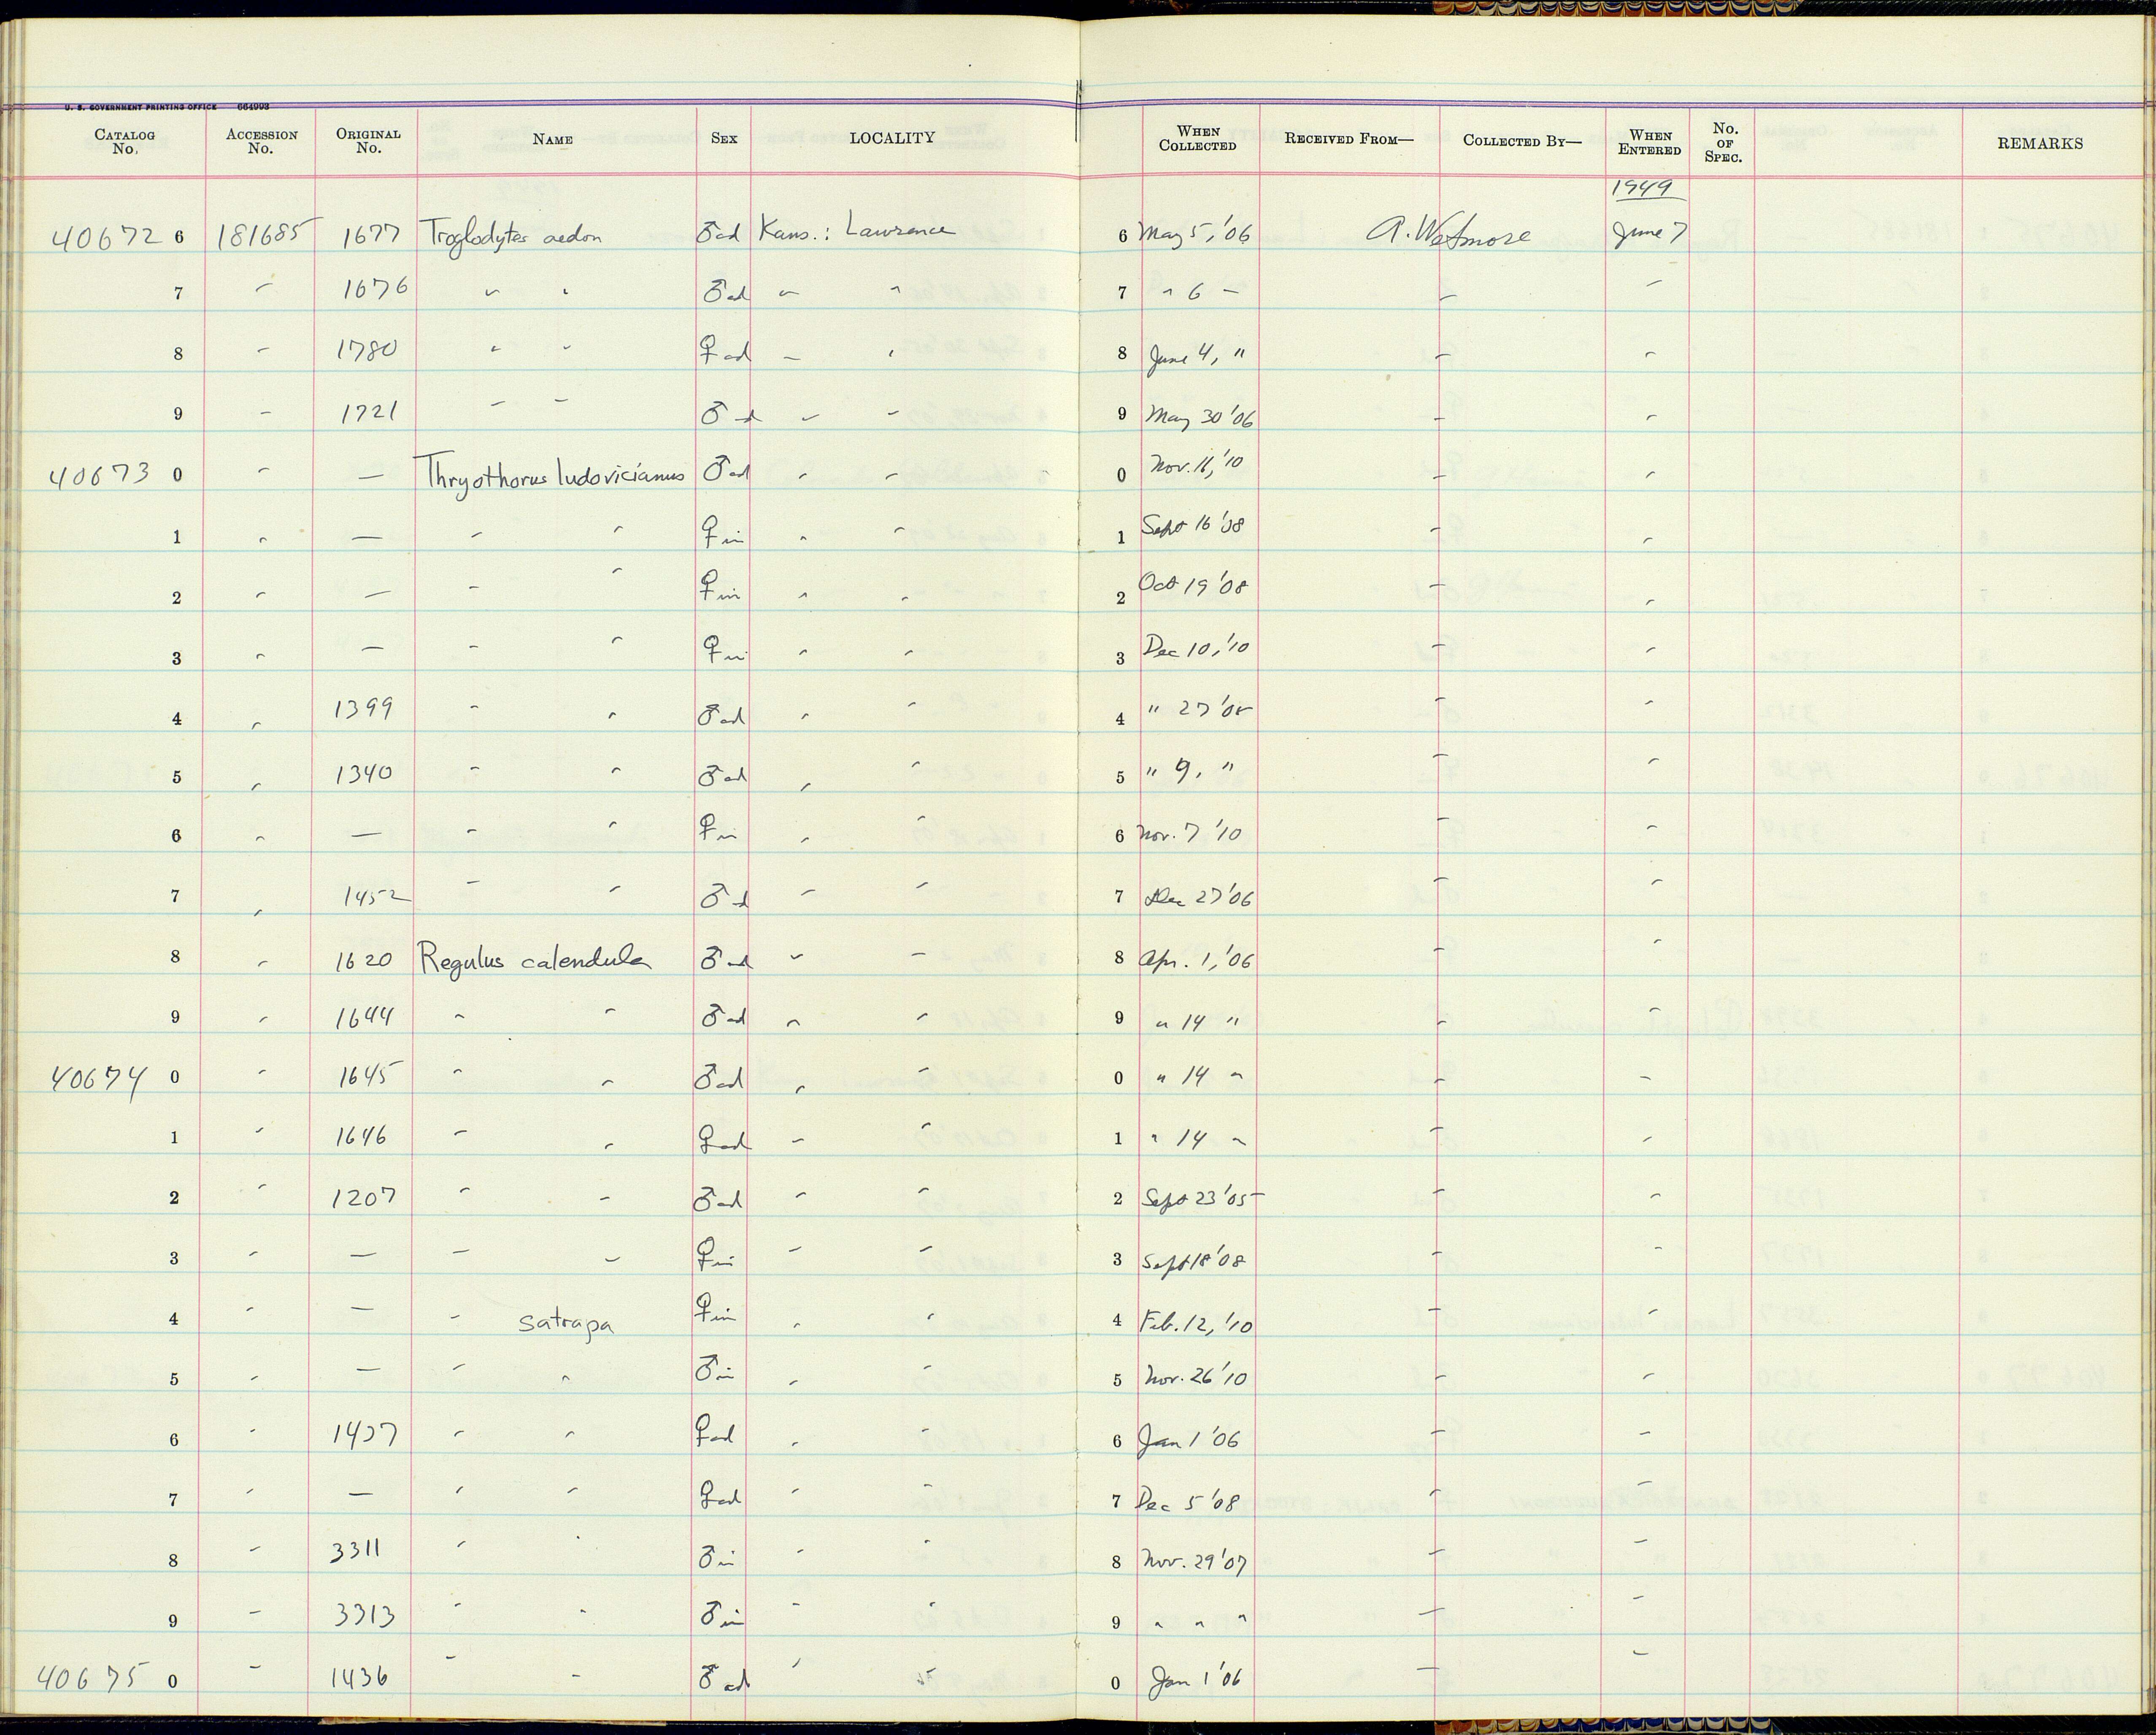 U. S. GOVERNMENT PRINTING OFFICE 664993
CATALOG No. ACCESSION No. ORIGINAL No. NAME SEX LOCALITY WHEN COLLECTED RECEIVED FROM— COLLECTED BY— WHEN ENTERED No. OF SPEC. REMARKS
1949
40672 6 181685 1677 Troglodytes aedon ♂ad Kans.: Lawrence 6 May 5, '06 A. Wetmore June 7
7 " 1676 " " ♂ad " " 7 " 6 " " "
8 " 1780 " " ♀ad " " 8 June 4, " " "
9 " 1721 " " ♂ad " " 9 May 30 '06 " "
40673 0 " — Thryothorus ludovicianus ♂ad " " 0 Nov. 11, '10 " "
1 " — " " ♀im " " 1 Sept 16 '08 " "
2 " — " " ♀im " " 2 Oct 19 '08 " "
3 " — " " ♀im " " 3 Dec 10, '10 " "
4 " 1399 " " ♂ad " " 4 " 27 '05 " "
5 " 1340 " " ♂ad " " 5 " 9, " " "
6 " — " " ♀im " " 6 Nov. 7 '10 " "
7 " 1452 " " ♂ad " " 7 Dec 27 '06 " "
8 " 1620 Regulus calendula ♂ad " " 8 Apr. 1, '06 " "
9 " 1644 " " ♂ad " " 9 " 14 " " "
40674 0 " 1645 " " ♂ad " " 0 " 14 " " "
1 " 1646 " " ♀ad " " 1 " 14 " " "
2 " 1207 " " ♂ad " " 2 Sept 23 '05 " "
3 " — " " ♀im " " 3 Sept 18 '08 " "
4 " — " satrapa ♀im " " 4 Feb. 12, '10 " "
5 " — " " ♂im " " 5 Nov. 26 '10 " "
6 " 1437 " " ♀ad " " 6 Jan 1 '06 " "
7 " — " " ♀ad " " 7 Dec 5 '08 " "
8 " 3311 " " ♂im " " 8 Nov. 29 '07 " "
9 " 3313 " " ♂im " " 9 " " " " "
40675 0 " 1436 " " ♂ad " " 0 Jan 1 '06 " "